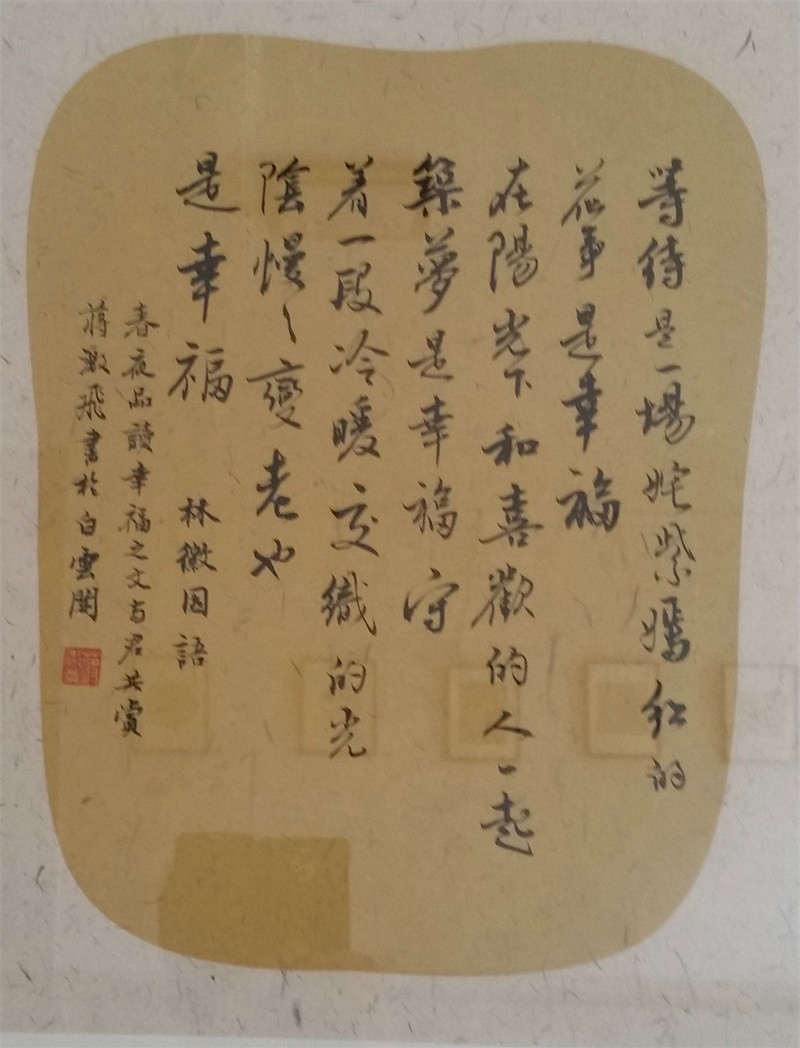 等待是一場姹紫嫣紅的
花事是幸福
在陽光下和喜歡的人一起
築夢是幸福守
着一段冷暖交織的光
陰慢〻變老也
是幸福
林徽因語
春夜品讀幸福之文与君共賞
蔣飛書於白雲